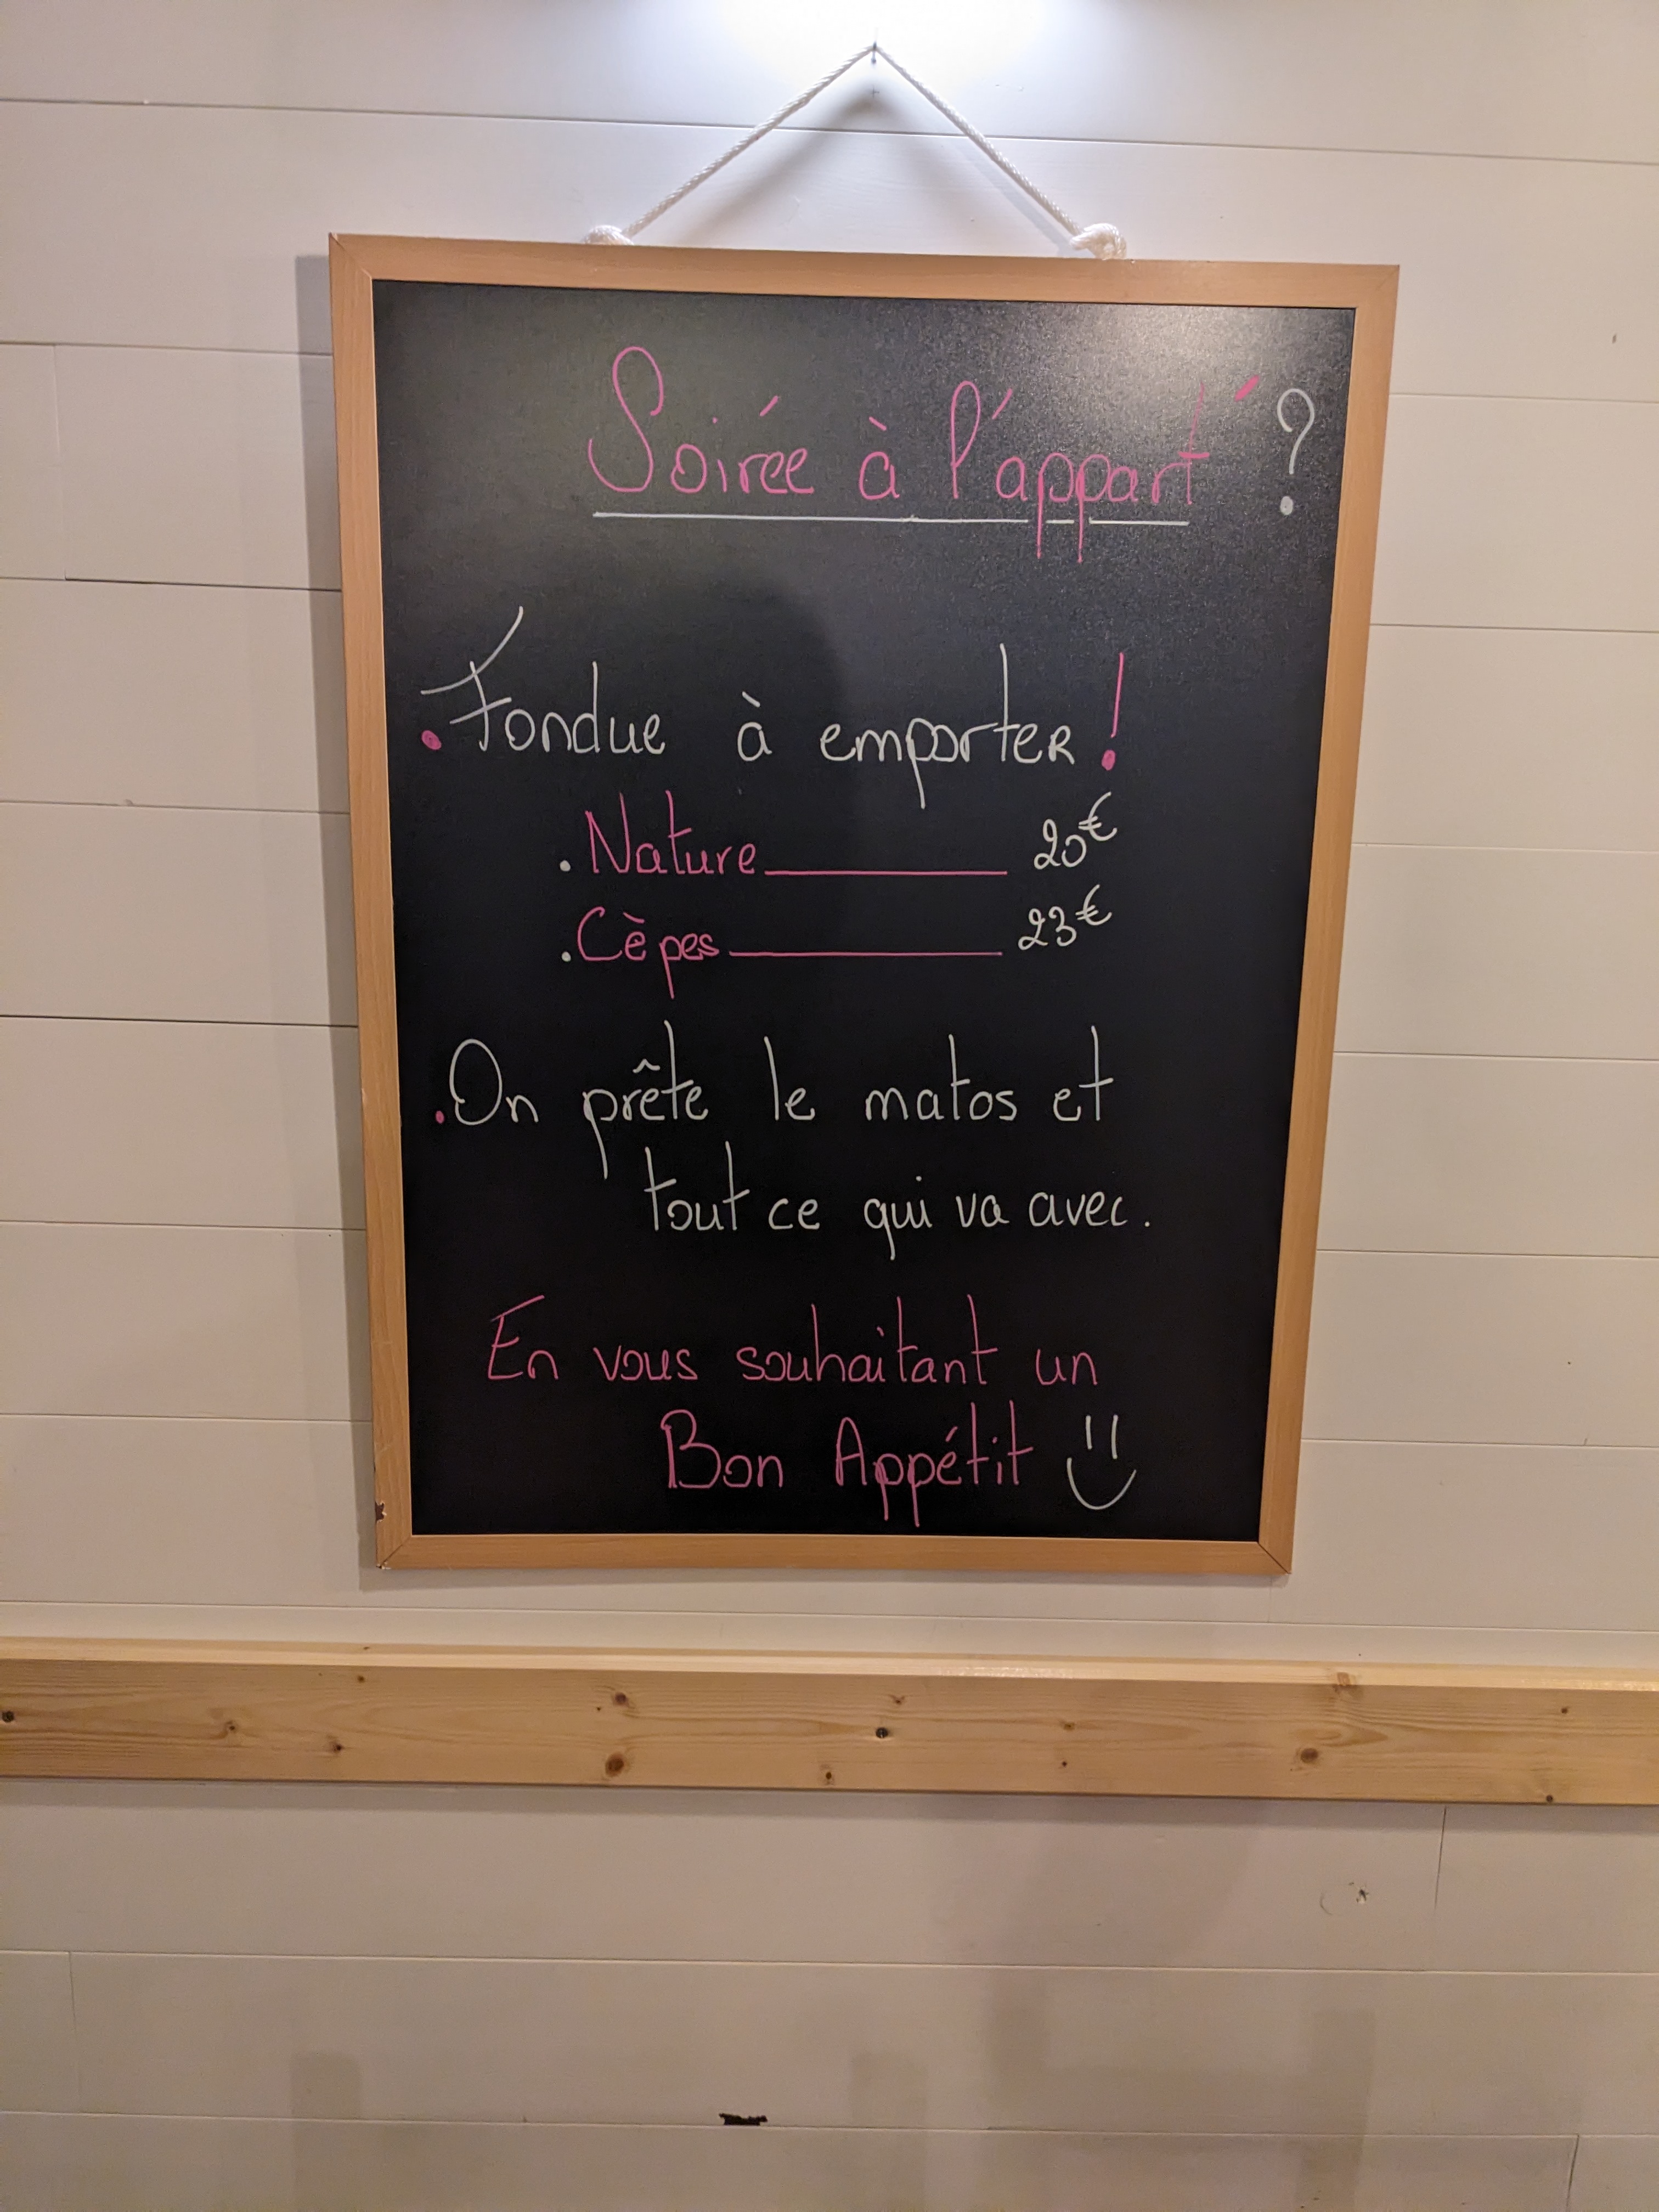 Soirée à l'appart' ?
. Fondue à emporter !
. Nature 20€
. Cèpes 23€
. On prête le matos et
tout ce qui va avec.
En vous souhaitant un
Bon Appétit